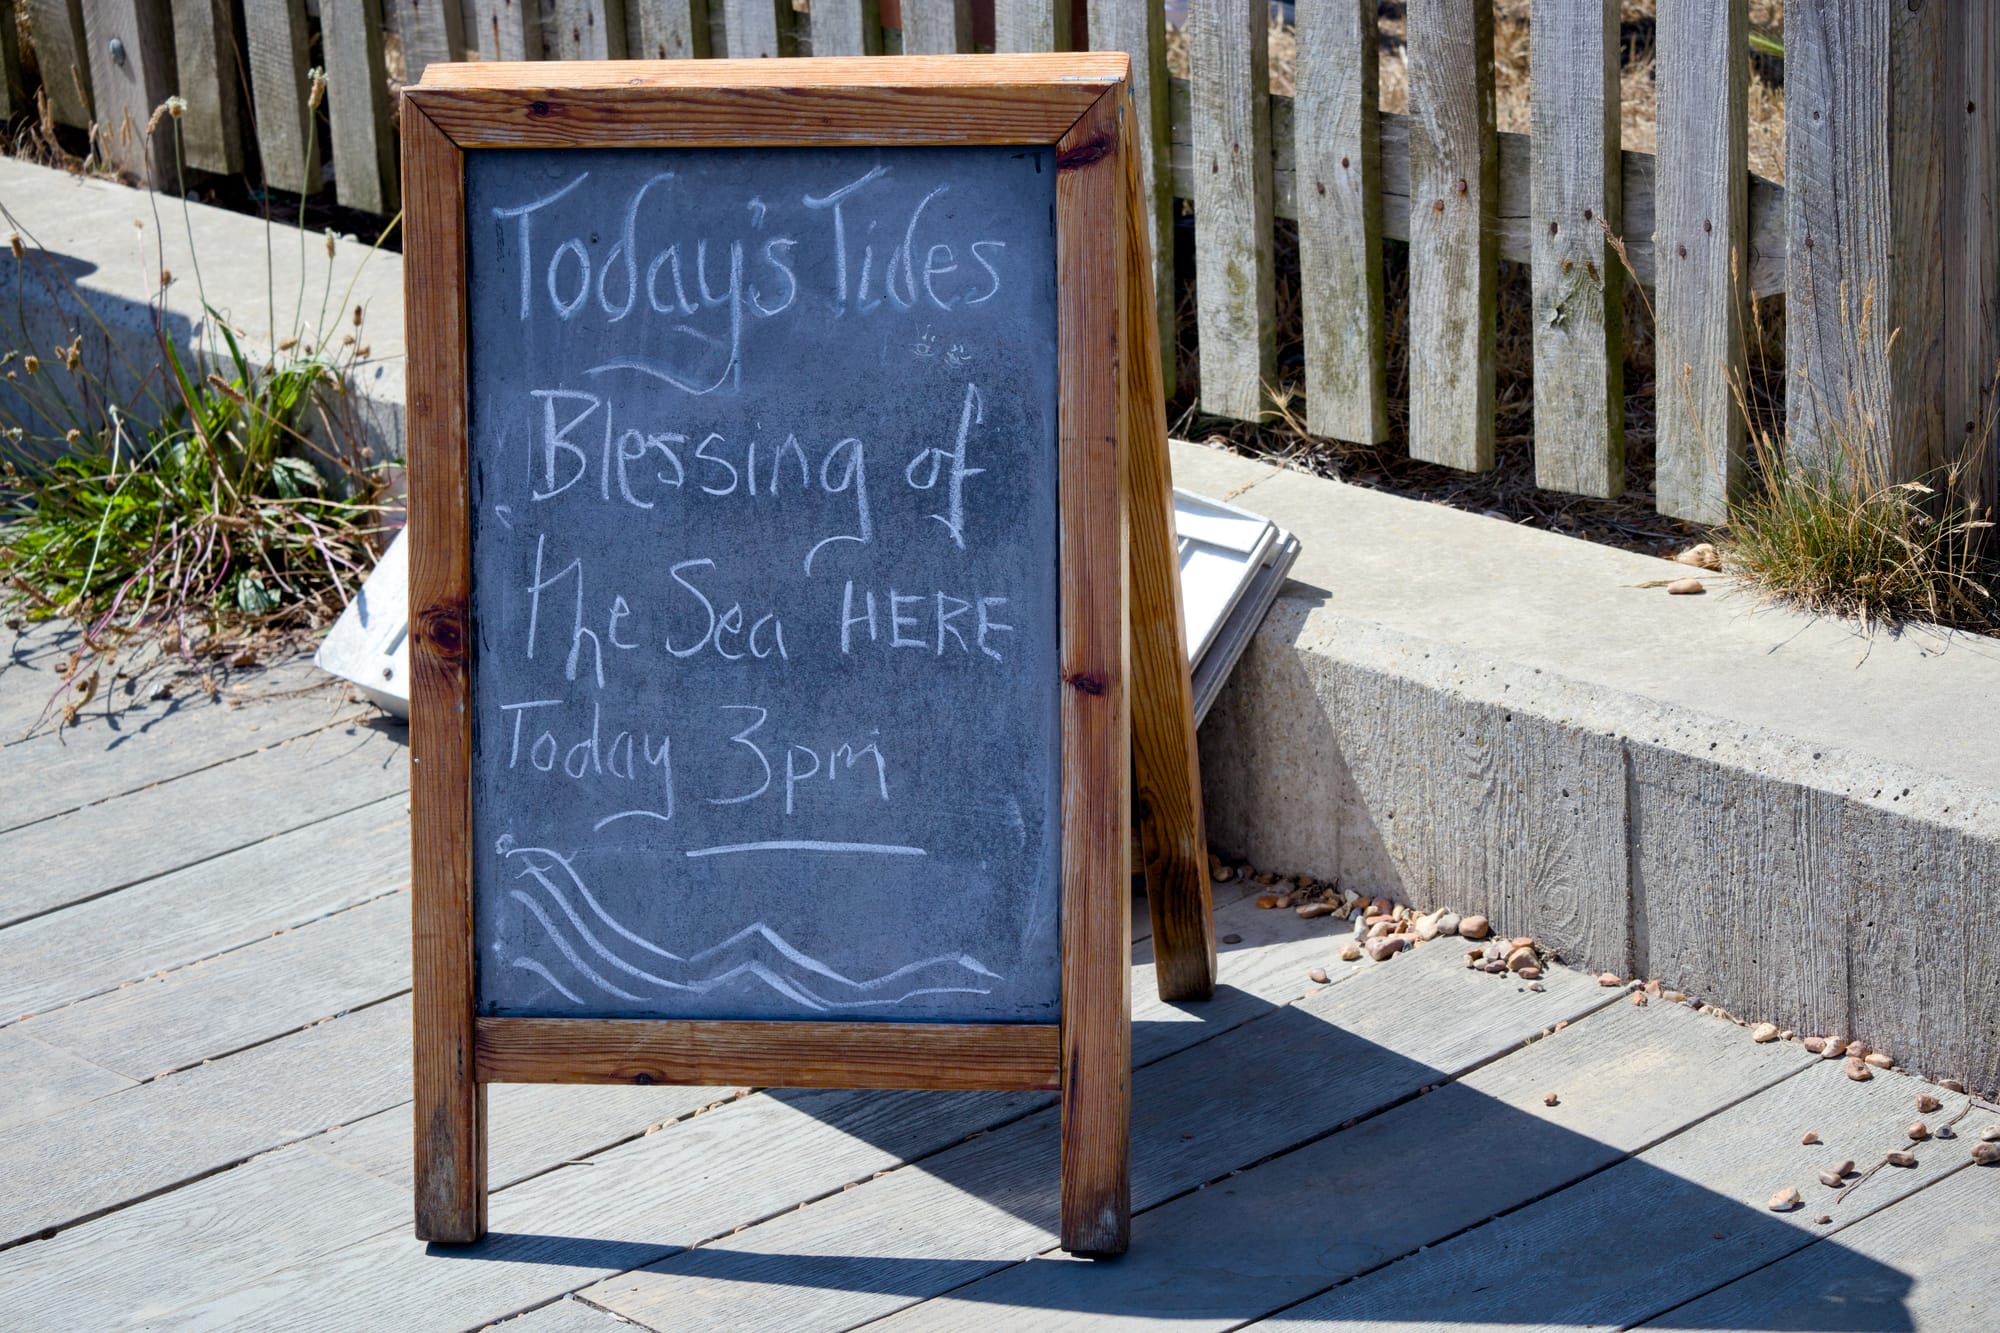 Today's Tides
Blessing of
the Sea HERE
Today 3pm